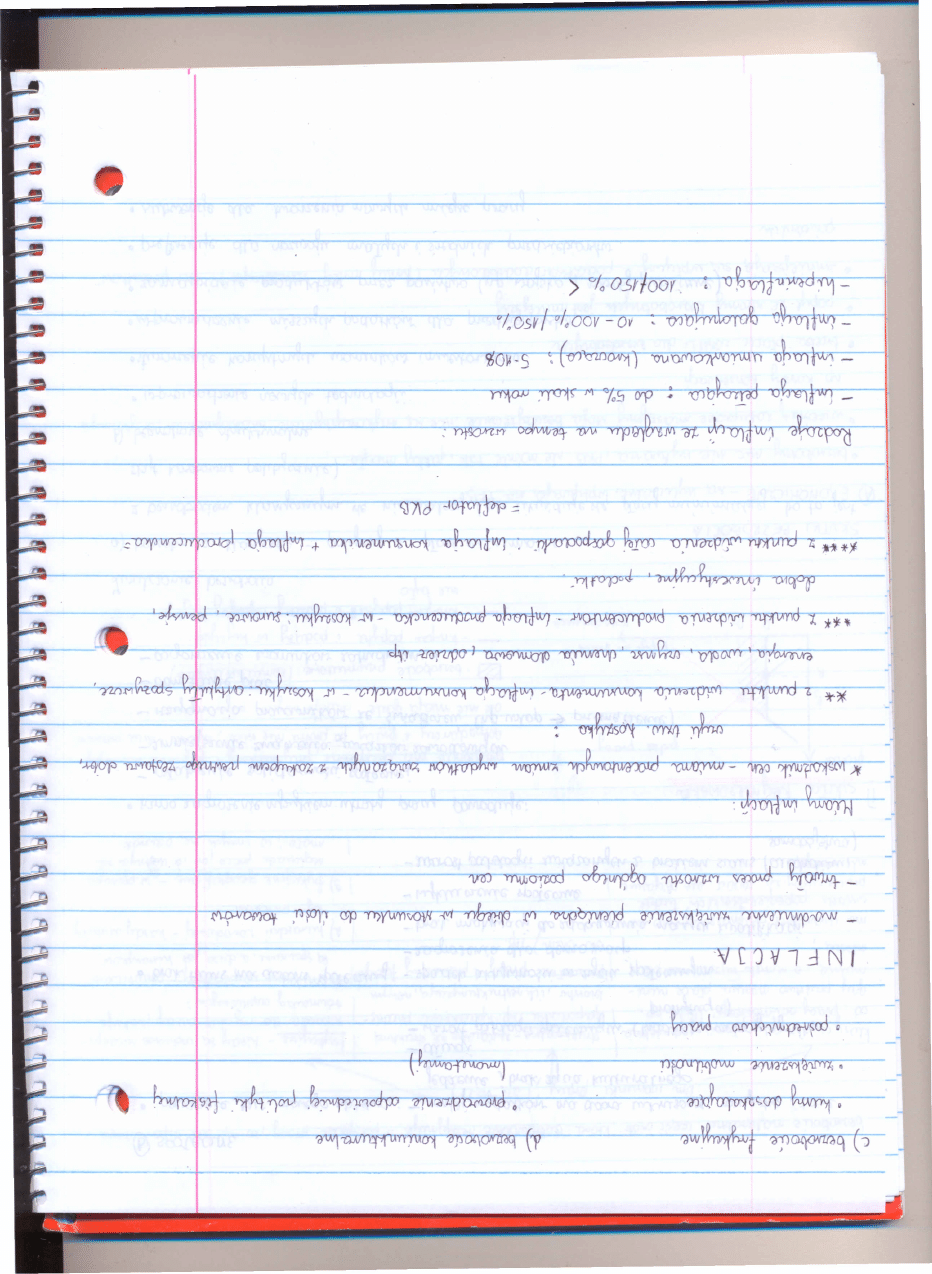 c) bezrobocie frykcyjne
• kursy doszkalające
• zwiększenie mobilności
• pośrednictwo pracy
d) bezrobocie koniunkturalne
• prowadzenie odpowiedniej polityki fiskalnej (monetarnej)
INFLACJA
– nadmierne zwiększenie pieniądza w obiegu w stosunku do ilości towarów
– trwały proces wzrostu ogólnego poziomu cen
Miary inflacji:
* wskaźnik cen – miara procentowych zmian wydatków związanych z zakupem pewnego zespołu dóbr,
czyli tzw. koszyka :
** z punktu widzenia konsumenta – inflacja konsumencka – w koszyku: artykuły spożywcze,
energia, woda, czynsz, chemia domowa, odzież itp
*** z punktu widzenia producentów – inflacja producencka – w koszyku: surowce, pensje,
dobra inwestycyjne, podatki.
**** z punktu widzenia całej gospodarki inflacja konsumencka + inflacja producencka =
= deflator PKB
Rodzaje inflacji ze względu na tempo wzrostu :
– inflacja pełzająca : do 5% w skali roku
– inflacja umiarkowana (krocząca) : 5-10%
– inflacja galopująca : 10-100% /150%
– hiperinflacja : 100/150% <